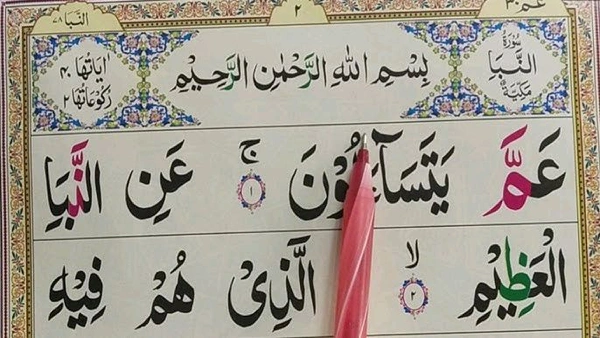 النَّبَا ٧٨ ٢ عَمَّ ٣٠
سُوْرَةُ النَّبَاِ مَكِّيَّةٌ
بِسْمِ اللّٰهِ الرَّحْمٰنِ الرَّحِيْمِ
اٰيَاتُهَا ٤٠ رُكُوْعَاتُهَا ٢
عَمَّ يَتَسَآءَلُوْنَ ۚ ١ عَنِ النَّبَاِ
الْعَظِيْمِ ۙ ٢ الَّذِىْ هُمْ فِيْهِ